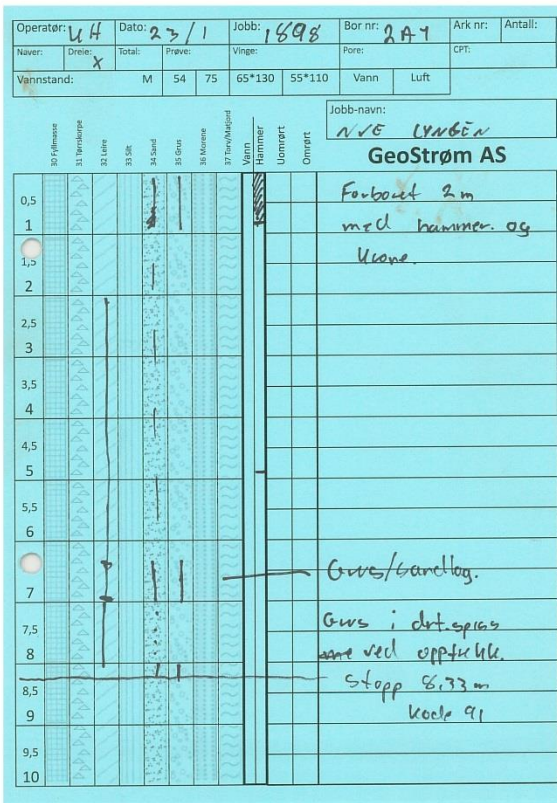 Operatør: UH Dato: 23/1 Jobb: 1898 Bor nr: 2A4 Ark nr: Antall:
Naver: Dreie: X Total: Prøve: Vinge: Pore: CPT:
Vannstand: M 54 75 65*130 55*110 Vann Luft
Jobb-navn:
NVE LYNGEN
GeoStrøm AS
30 Fyllmasse 31 Tørrskorpe 32 Leire 33 Silt 34 Sand 35 Grus 36 Morene 37 Torv/Matjord Vann Hammer Uomrørt Omrørt
0,5 Forboret 2m
1 med hammer. og
1,5 krone.
2
2,5
3
3,5
4
4,5
5
5,5
6
Grus/sandlag.
7
7,5 Grus i drt.spiss
8 ved opptrekk.
Stopp 8,33 m
8,5
9 Kode 91
9,5
10